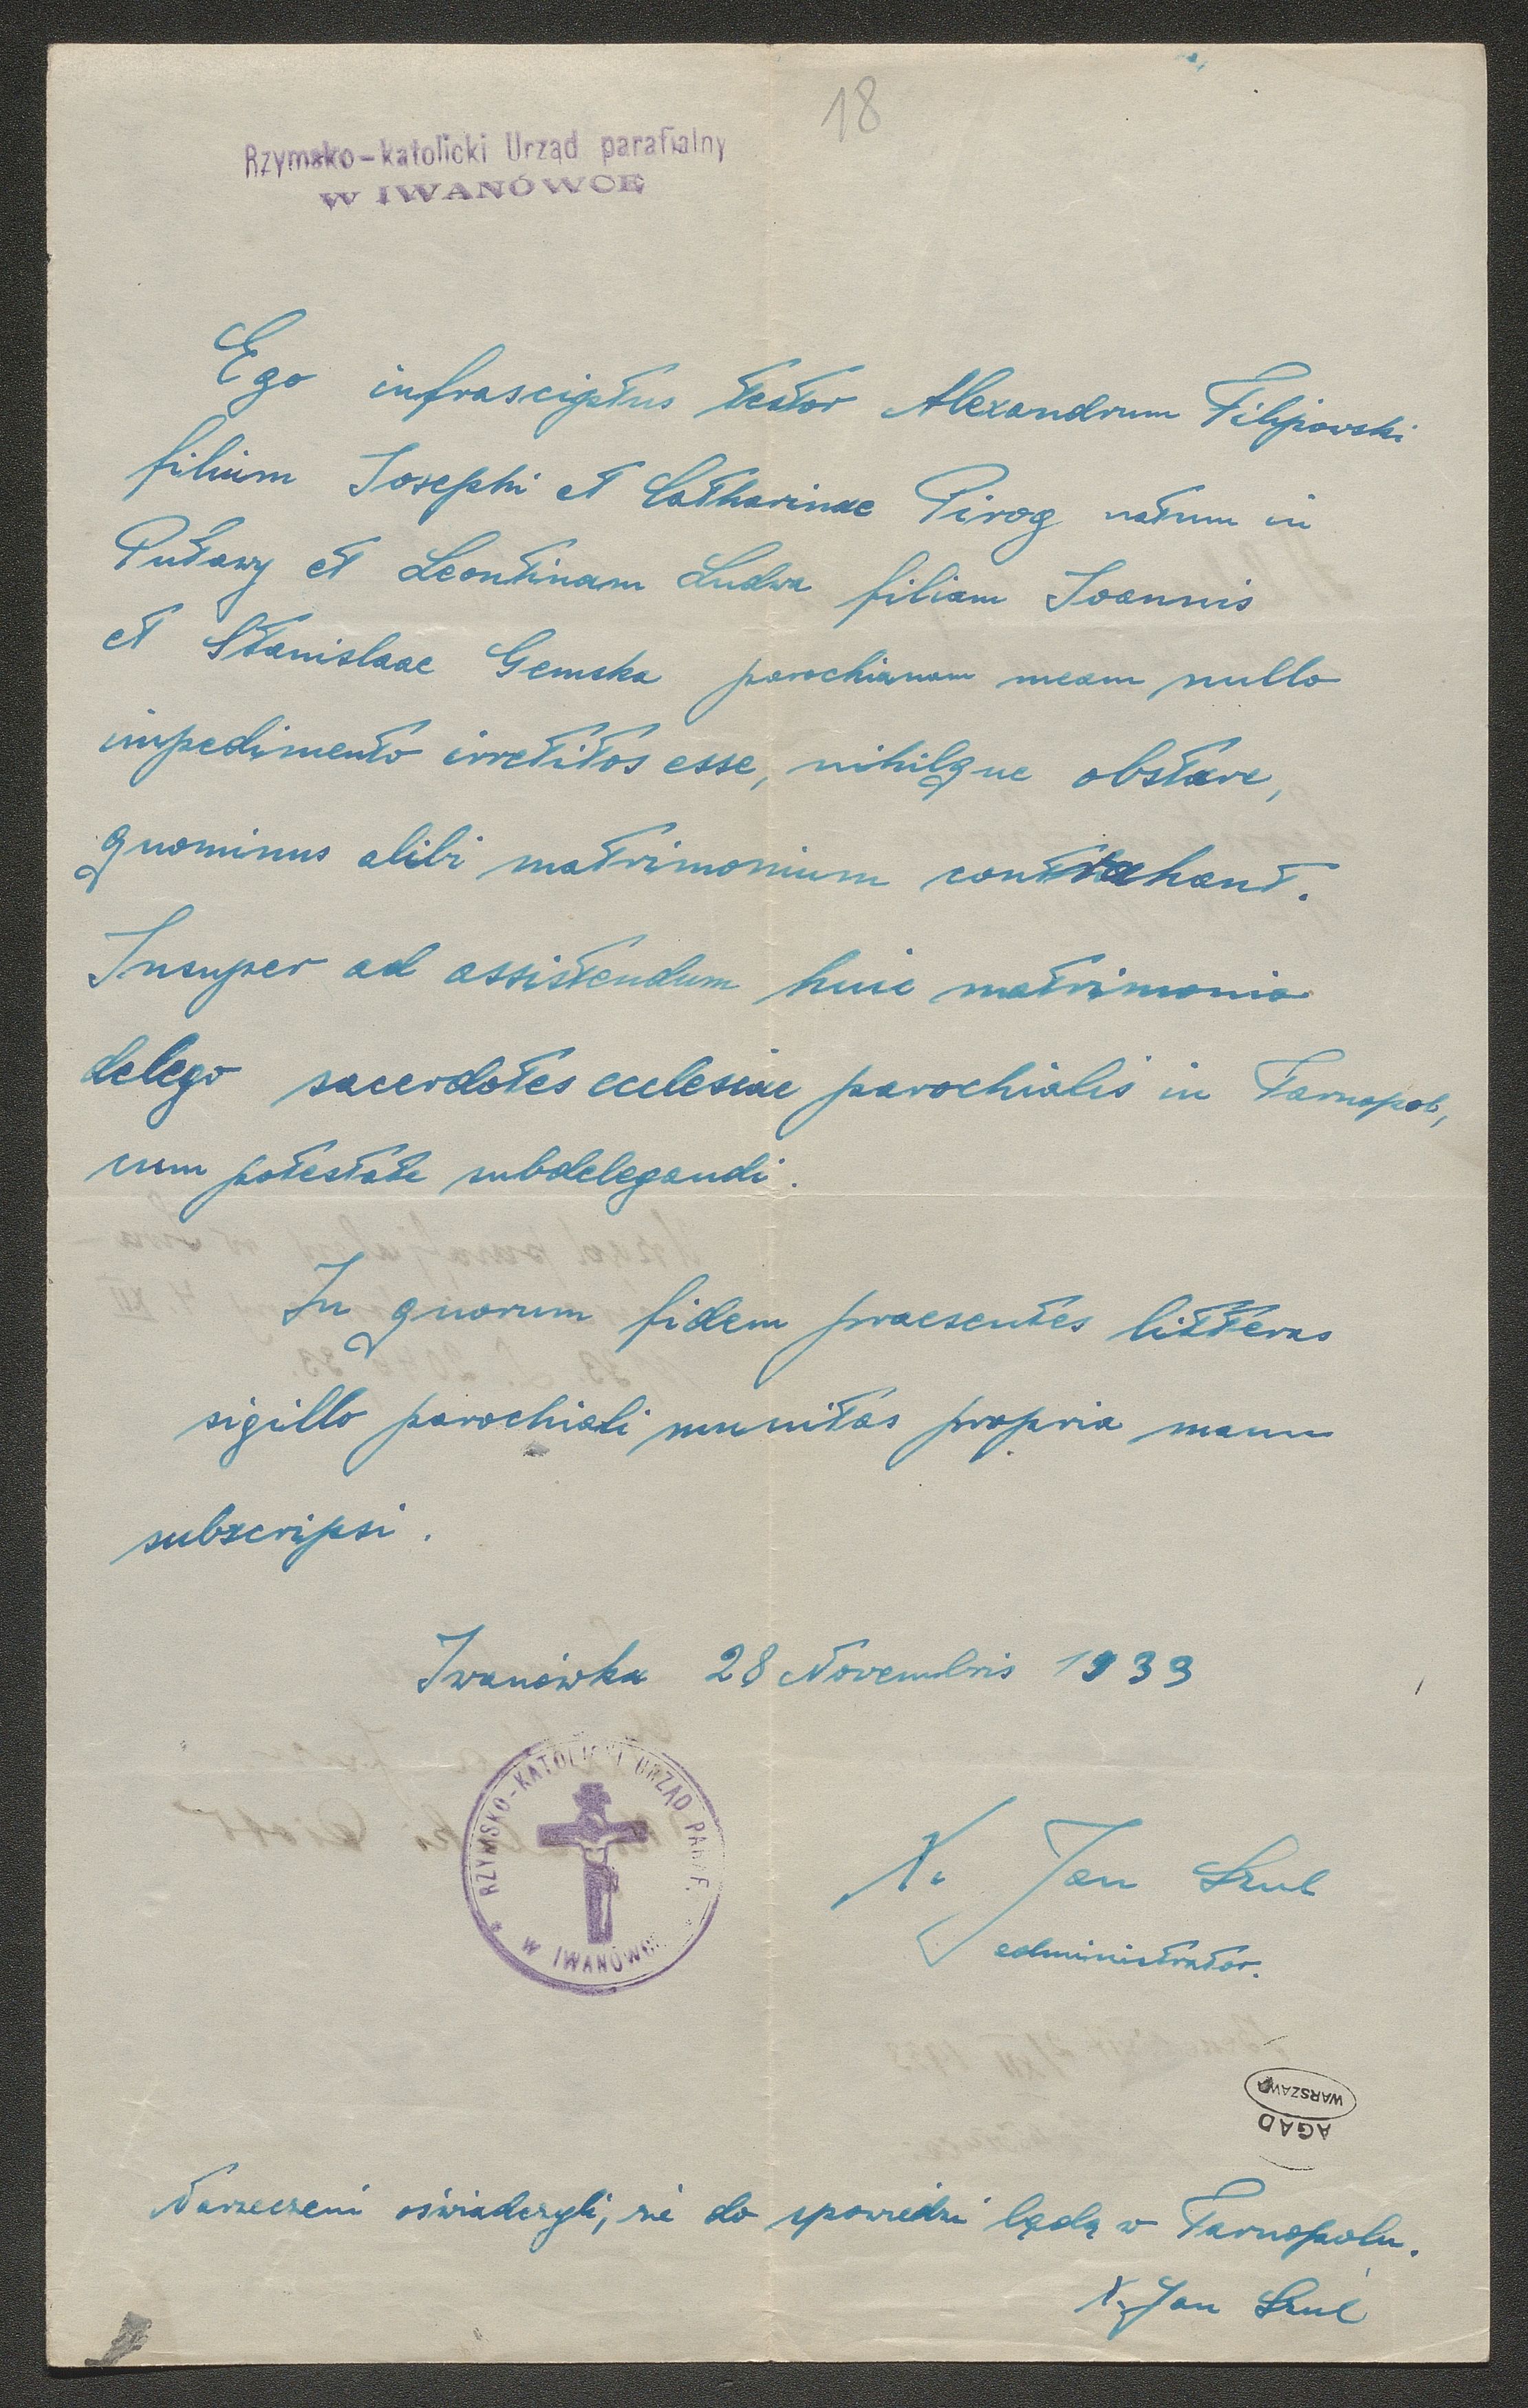 18
Rzymsko-katolicki Urząd parafialny
W IWANÓWCE
Ego infrasciptus testor Alexandrum Filipowski
filium Josephi et Catharinae Pirog natum in
Puławy et Leontinam Ludwa filiam Joannis
et Stanislaae Gemska parochianam meam nullo
impedimento irretitos esse, nihilque obstare,
quominus alibi matrimonium contrahant.
Insuper ad assistendum huic matrimonio
delego sacerdotes ecclesiae parochialis in Tarnopol,
cum potestate subdelegandi.
In quorum fidem praesentes litteras
sigillo parochiali munitas propria manu
subscripsi.
Iwanówka 28 Novembris 1933
RZYMSKO-KATOLICKI URZĄD PARAF.
W IWANÓWCE
X. Jan Szul
administrator.
WARSZAWA
AGAD
Narzeczeni oświadczyli, że do spowiedzi będą w Tarnopolu.
X. Jan Szul